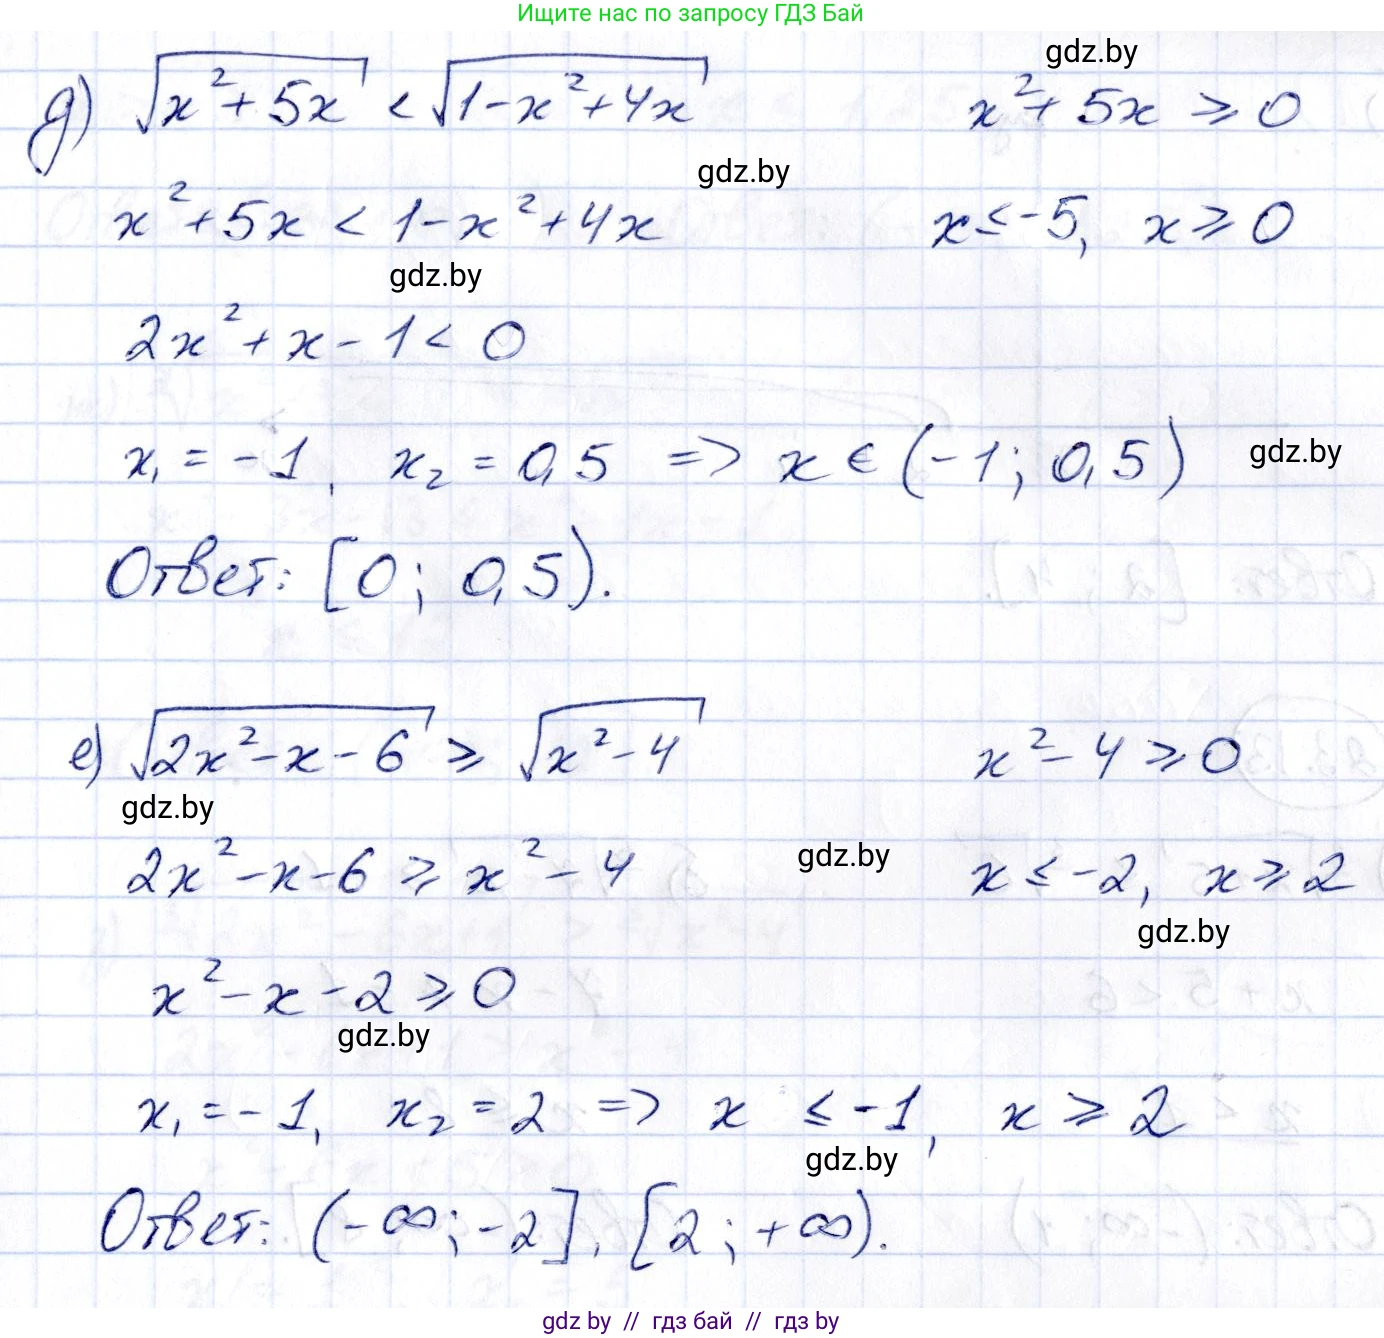 Ищите нас по запросу ГДЗ Бай
gdz.by
д) √(x²+5x) < √(1-x²+4x) x²+5x ⩾ 0
gdz.by
x²+5x < 1-x²+4x x ≤ -5, x ⩾ 0
gdz.by
2x²+x-1 < 0
x₁ = -1, x₂ = 0,5 => x ∈ (-1; 0,5) gdz.by
Ответ: [0; 0,5).
е) √(2x²-x-6) ⩾ √(x²-4) x²-4 ⩾ 0
gdz.by
2x²-x-6 ⩾ x²-4 gdz.by x ≤ -2, x ⩾ 2
gdz.by
x²-x-2 ⩾ 0
gdz.by
x₁ = -1, x₂ = 2 => x ≤ -1, x ⩾ 2
gdz.by
Ответ: (-∞; -2], [2; +∞).
gdz by // гдз бай // гдз by